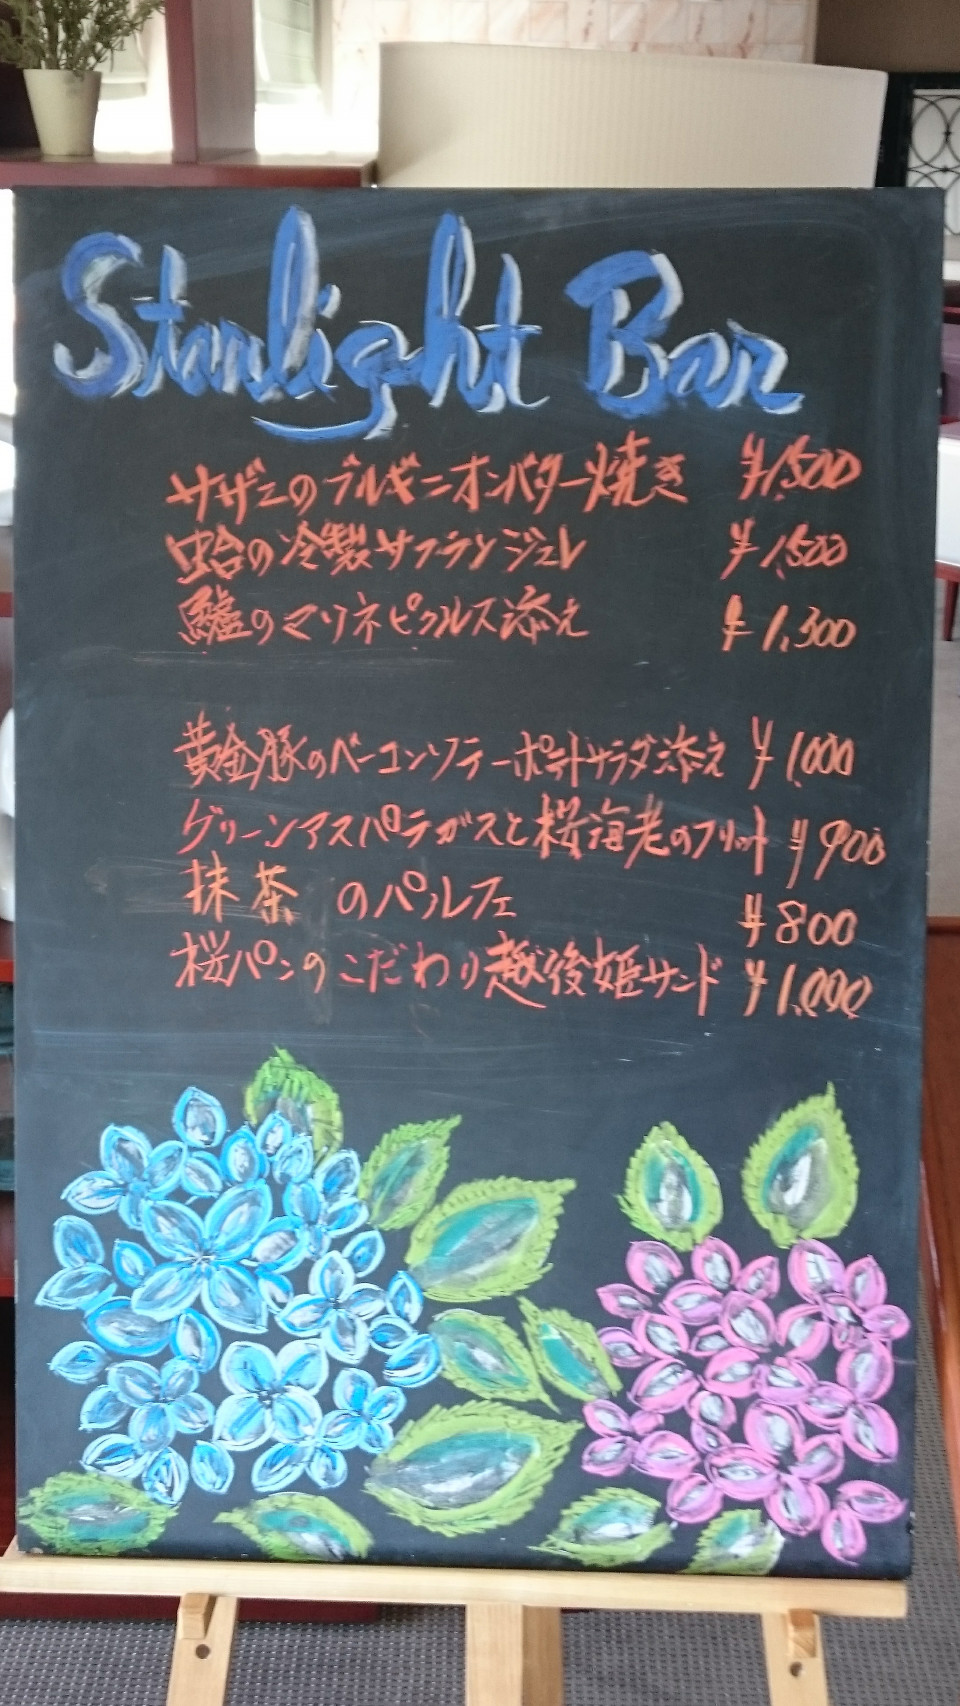 Starlight Bar
サザエのブルギニオンバター焼き ¥1,500
蛤の冷製サフランジュレ ¥1,500
鱸のマリネピクルス添え ¥1,300
黄金豚のベーコンソテーポテトサラダ添え ¥1,000
グリーンアスパラガスと桜海老のフリット ¥900
抹茶 のパルフェ ¥800
桜パンのこだわり越後姫サンド ¥1,000